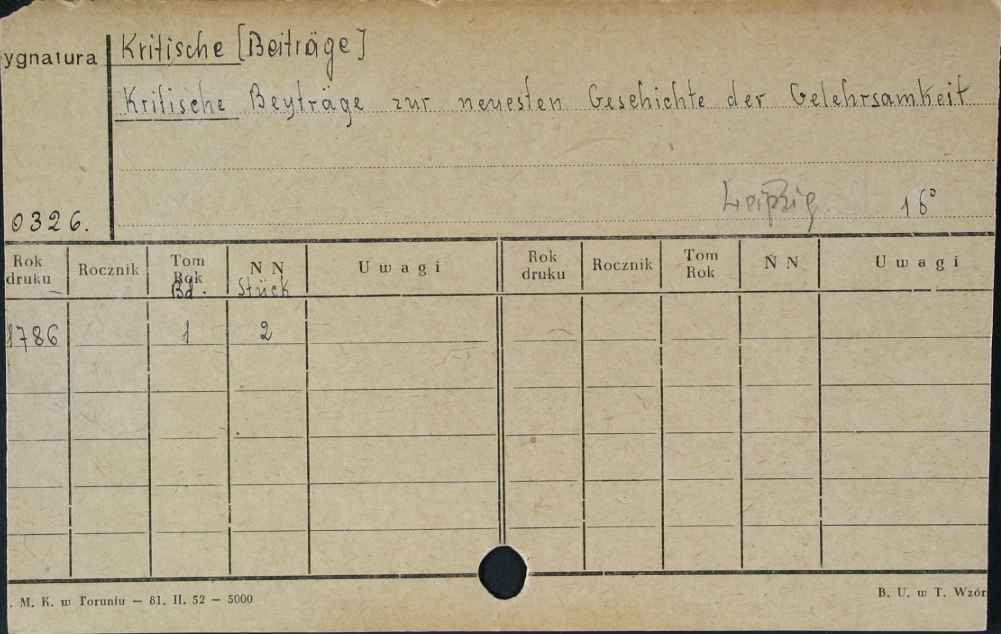 ygnatura
Kritische [Beiträge]
Kritische Beyträge zur neuesten Geschichte der Gelehrsamkeit
Leipzig. 16°
0326.
Rok druku Rocznik Tom Rok Bd. N N Stück Uwagi Rok druku Rocznik Tom Rok N N Uwagi
1786 1 2
. M. K. w Toruniu — 81. II. 52 — 5000
B. U. w T. Wzór